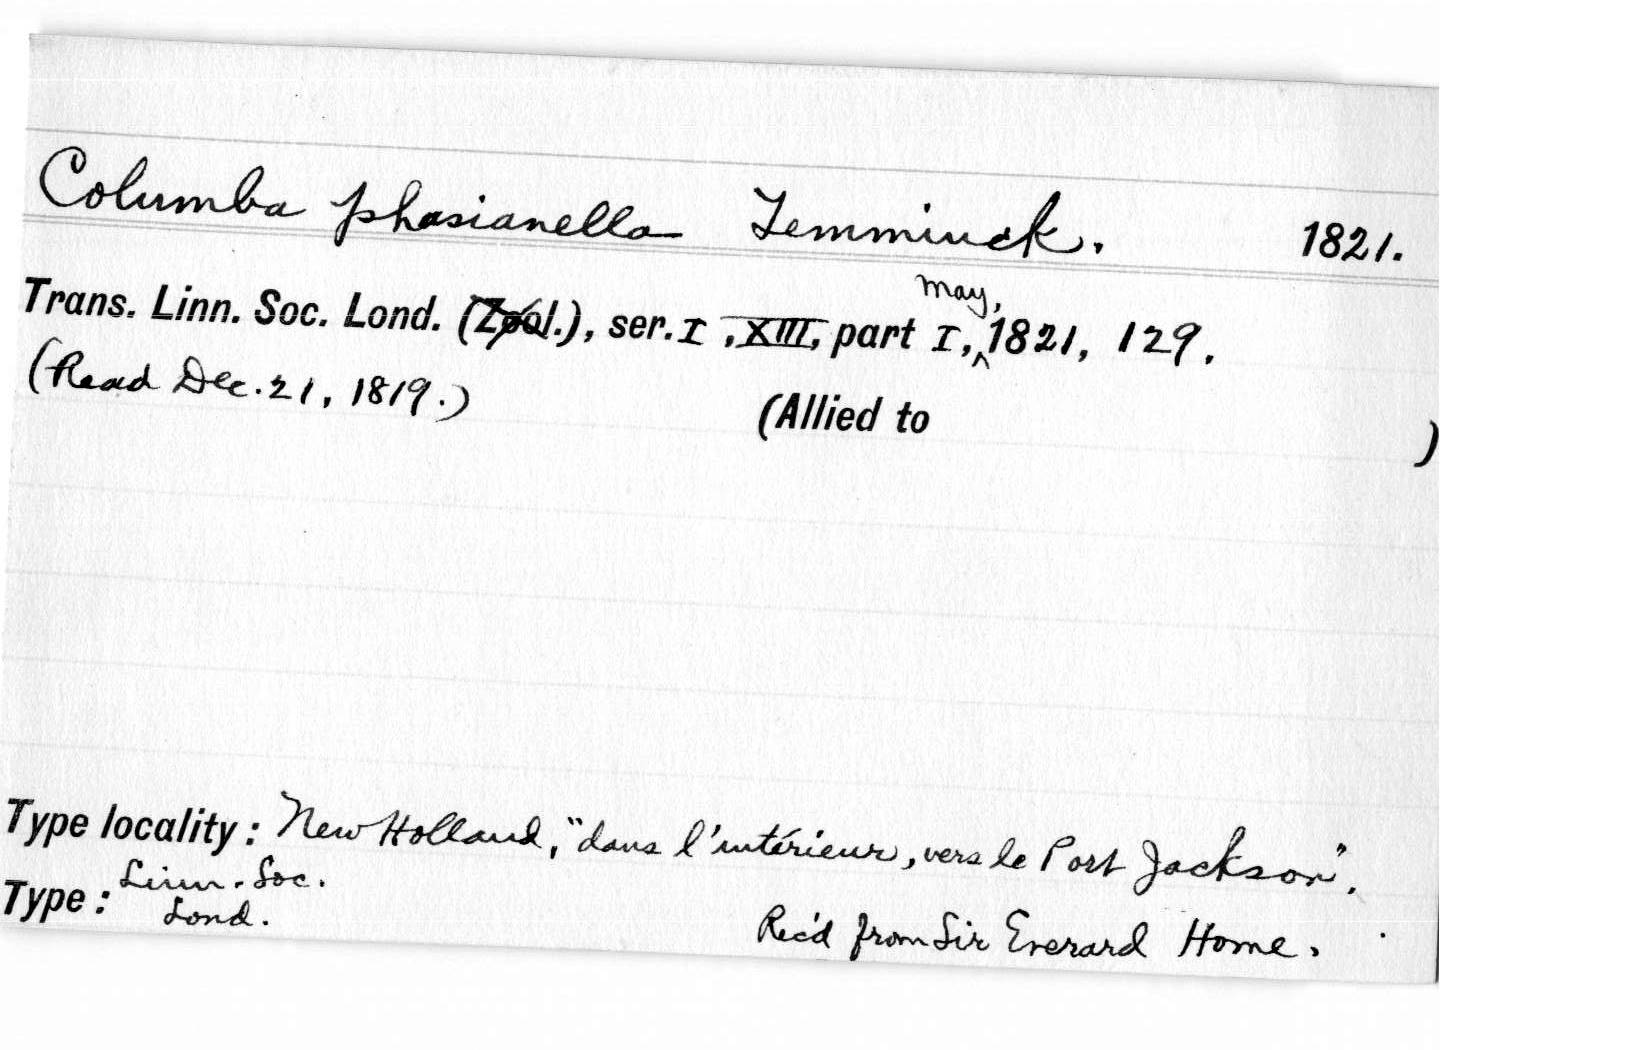 Columba phasianella Temminck. 1821.
May,
Trans. Linn. Soc. Lond. (Zool.), ser. I, XIII, part I, ^ 1821, 129.
(Read Dec. 21, 1819.)
(Allied to )
Type locality: New Holland, "dans l'intérieur, vers le Port Jackson".
Type: Linn. Soc.
Lond.
Rec'd from Sir Everard Home.